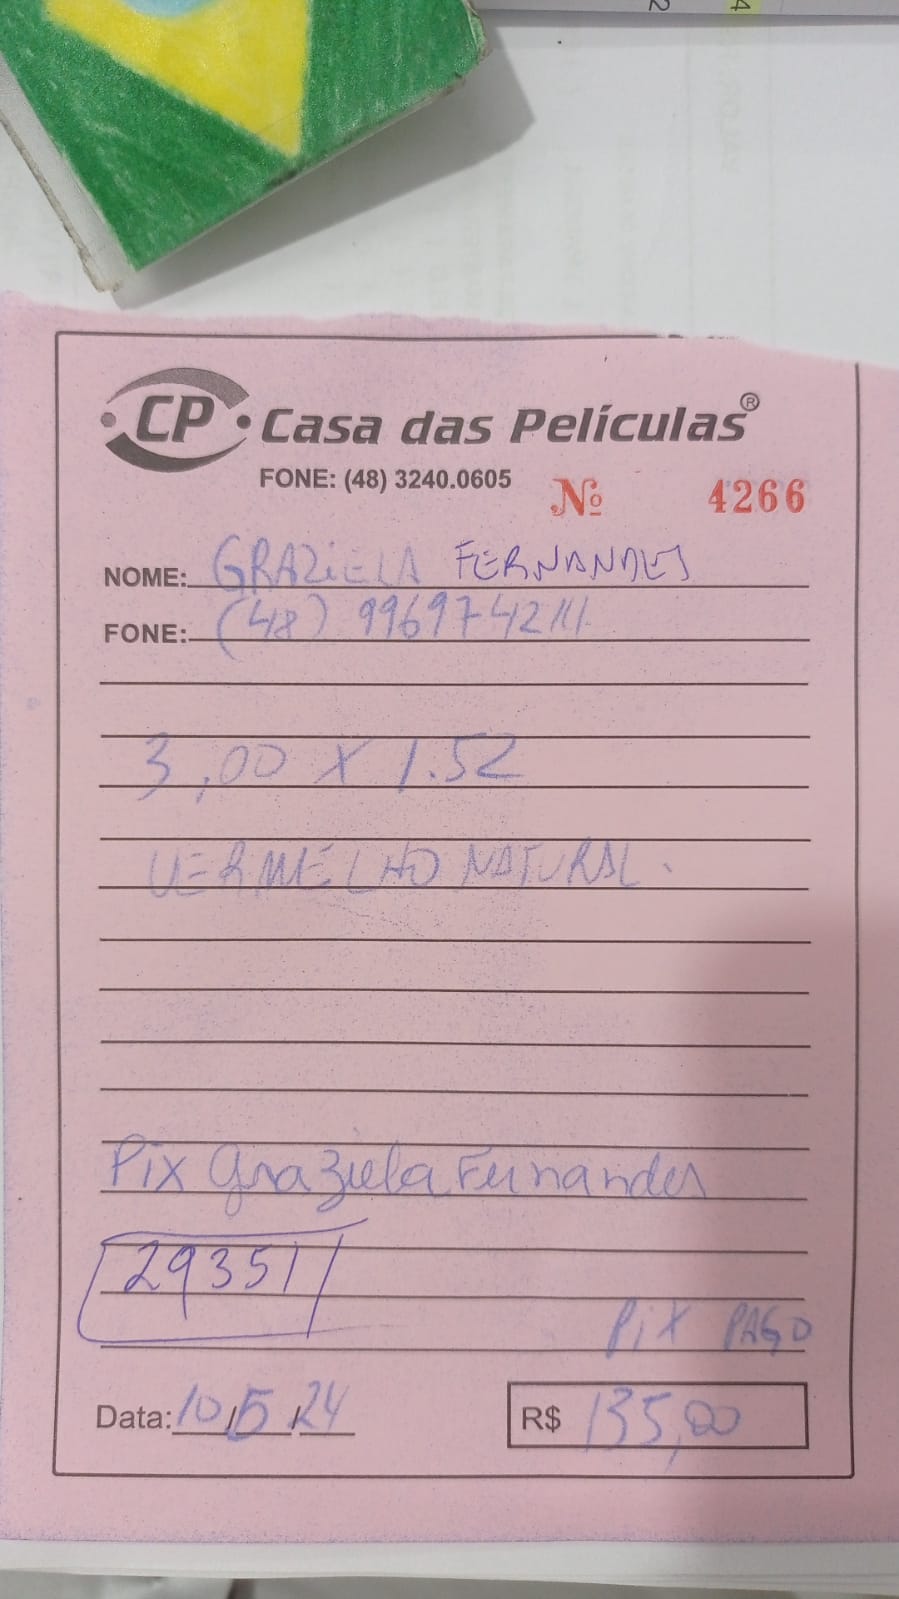 CP Casa das Películas®
FONE: (48) 3240.0605
Nº 4266
NOME: GRAZIELA FERNANDES
FONE: (48) 996974211
3,00 X 1.52
VERMELHO NATURAL.
Pix Graziela Fernandes
29351
PiX PAGO
Data: 10/5/24
R$ 135,00